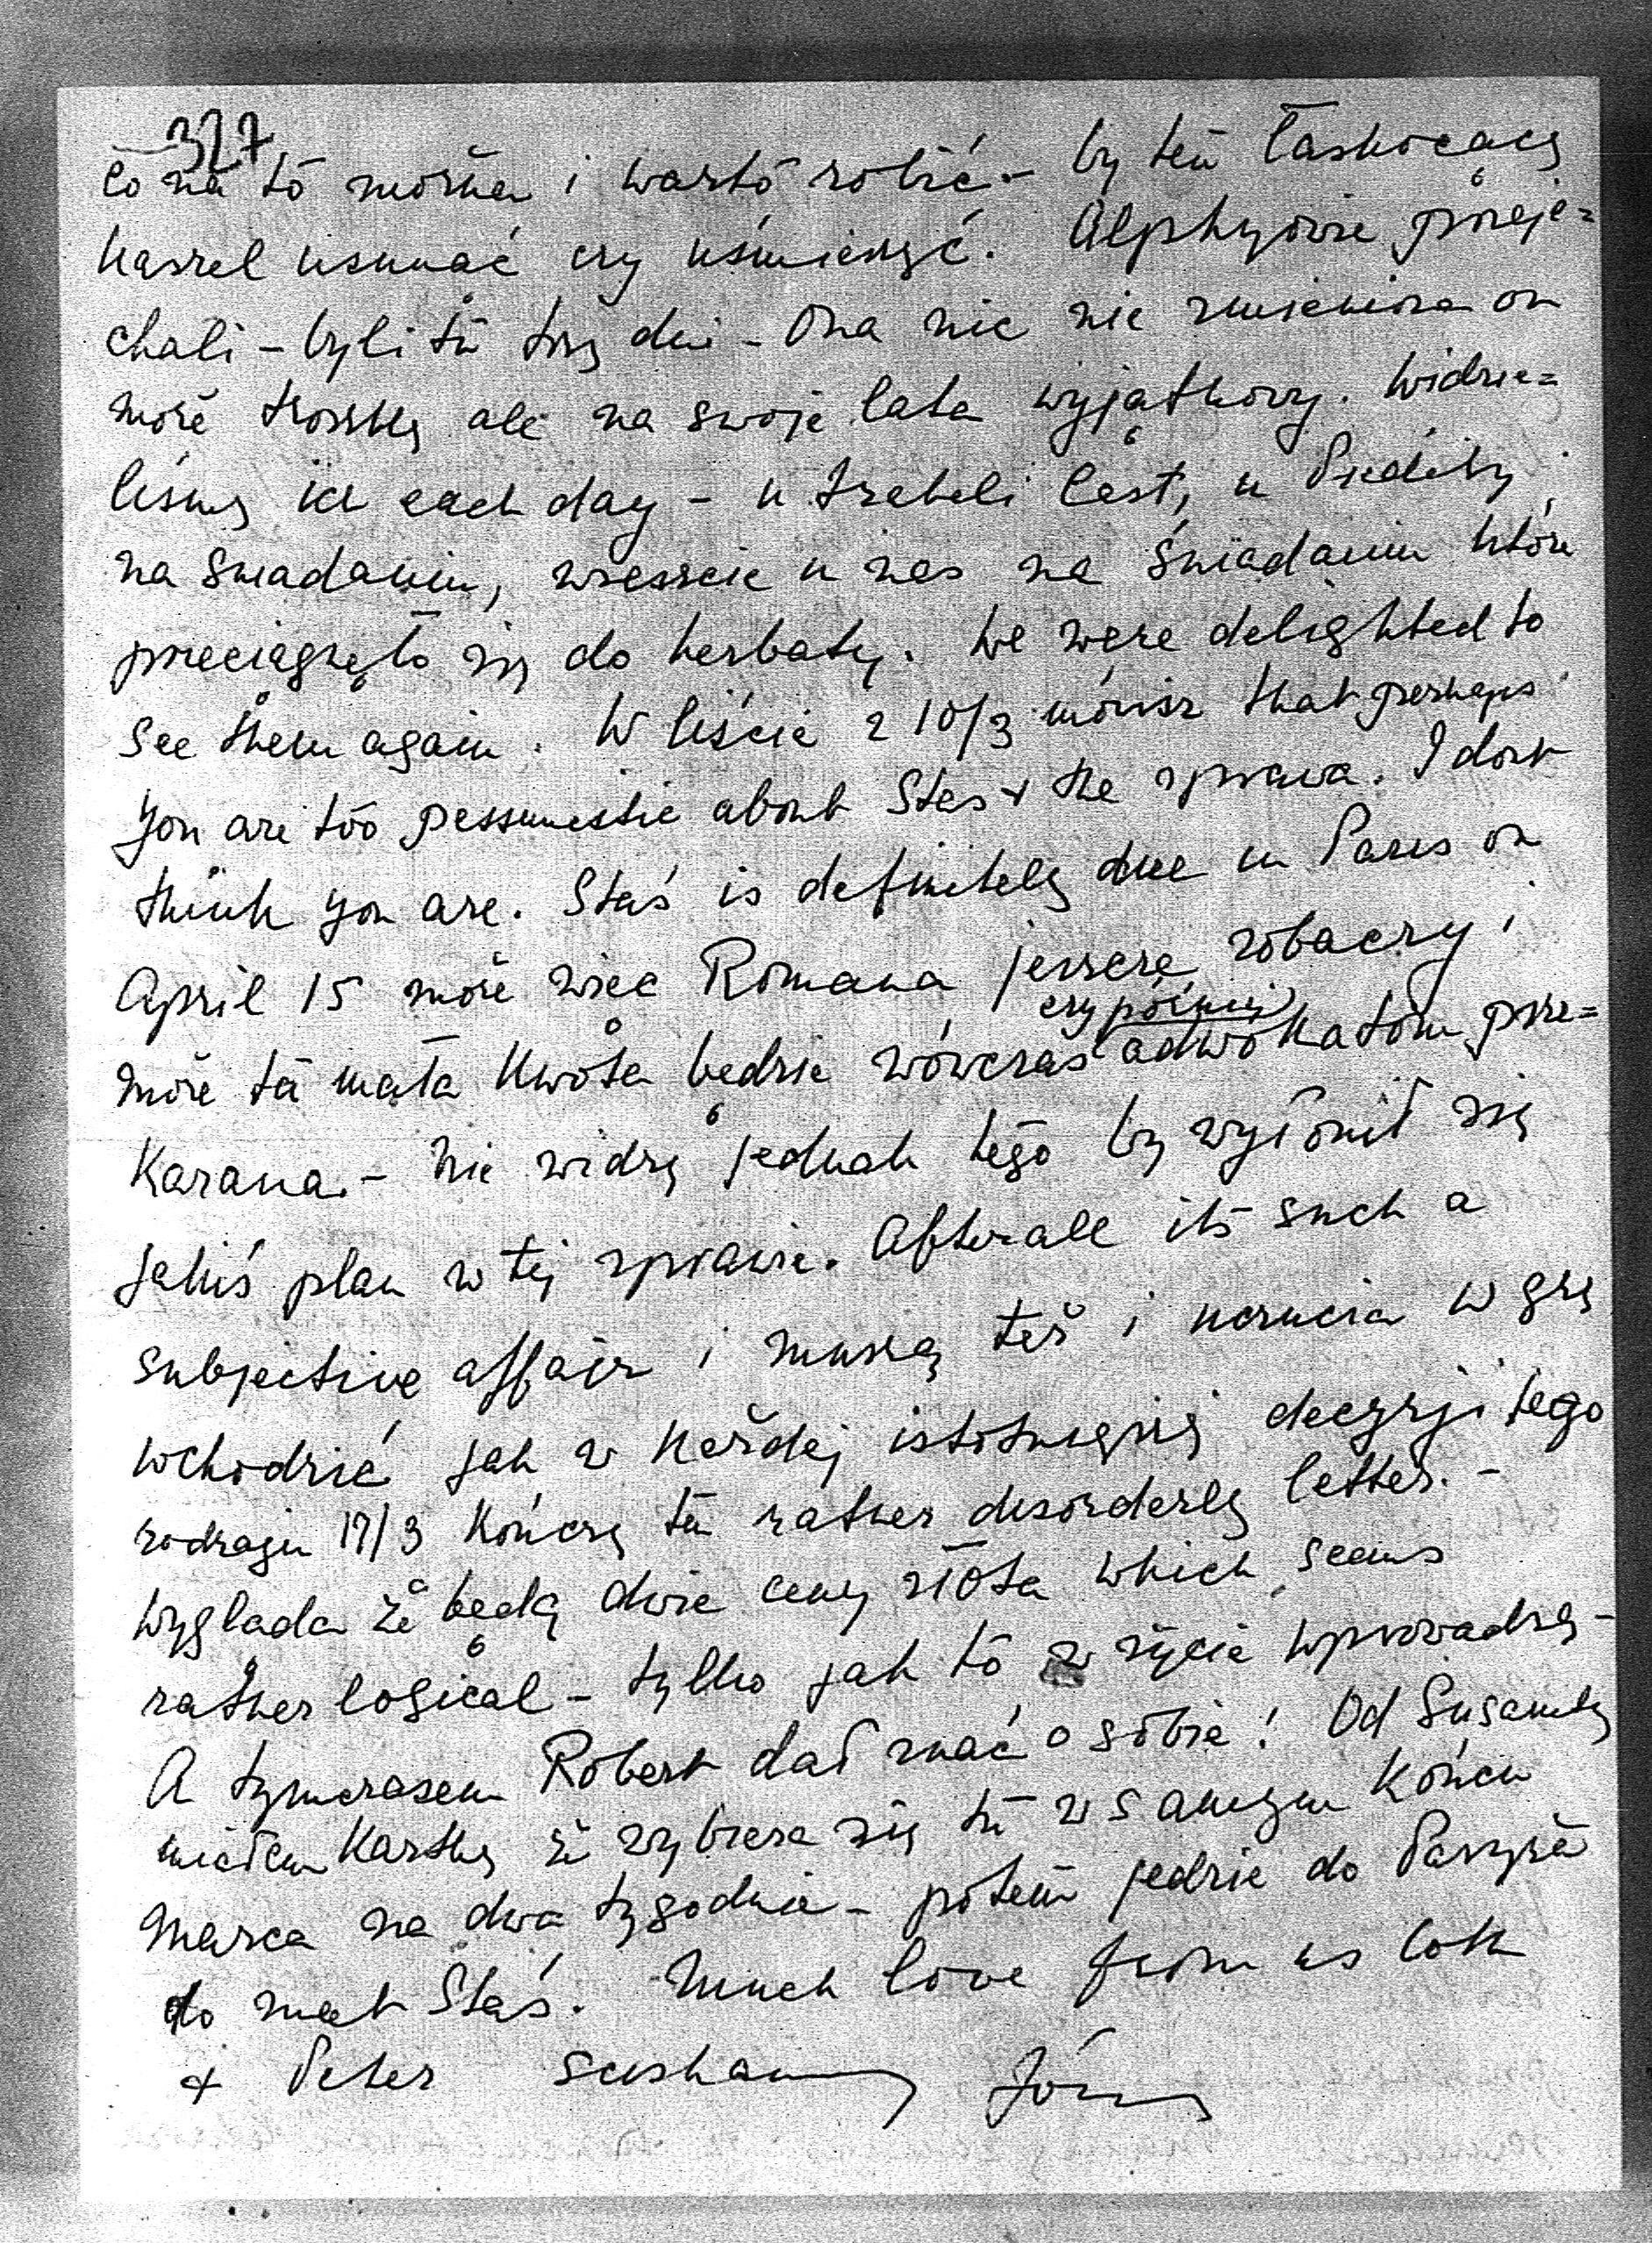 327
co na to można i warto robić - by ten łaskoczący
kaszel usunąć czy uśmierzyć. Alphyowie przeje=
chali - byli tu trzy dni - Ona nic nie zmieniona on
może troszkę ale na swoje lata wyjątkowy. Widzie=
liśmy ich each day - u Izabeli Cast, u
na śniadaniu, wreszcie u nas na śniadaniu które
przeciągnęło się do herbaty. We were delighted to
see them again. W liście z 10/3 mówisz that perhaps
you are too pessimistic about Staś + the sprawa. I dont
think you are. Staś is definitely due in Paris on
April 15 może więc Romana jeszcze zobaczy i
czy później
może ta mała kwota będzie wówczas adwokatom prze=
kazana. - Nie widzę jednak tego by wyłonił się
jakiś plan w tej sprawie. Afterall its such a
subjective affair i muszą też i uczucia w grę
wchodzić jak w każdej istotniejszej decyzji tego
rodzaju 17/3 Kończę ten rather disorderly letter. -
Wygląda że będą dwie ceny złota which seems
rather logical - tylko jak to w życie wprowadzą -
A tymczasem Robert dał znać o sobie! Od
miałem kartkę że wybiera się tu w samym końcu
marca na dwa tygodnie - potem jedzie do Paryża
to meet Staś. Much love from us both
+ Peter ściskamy Józio